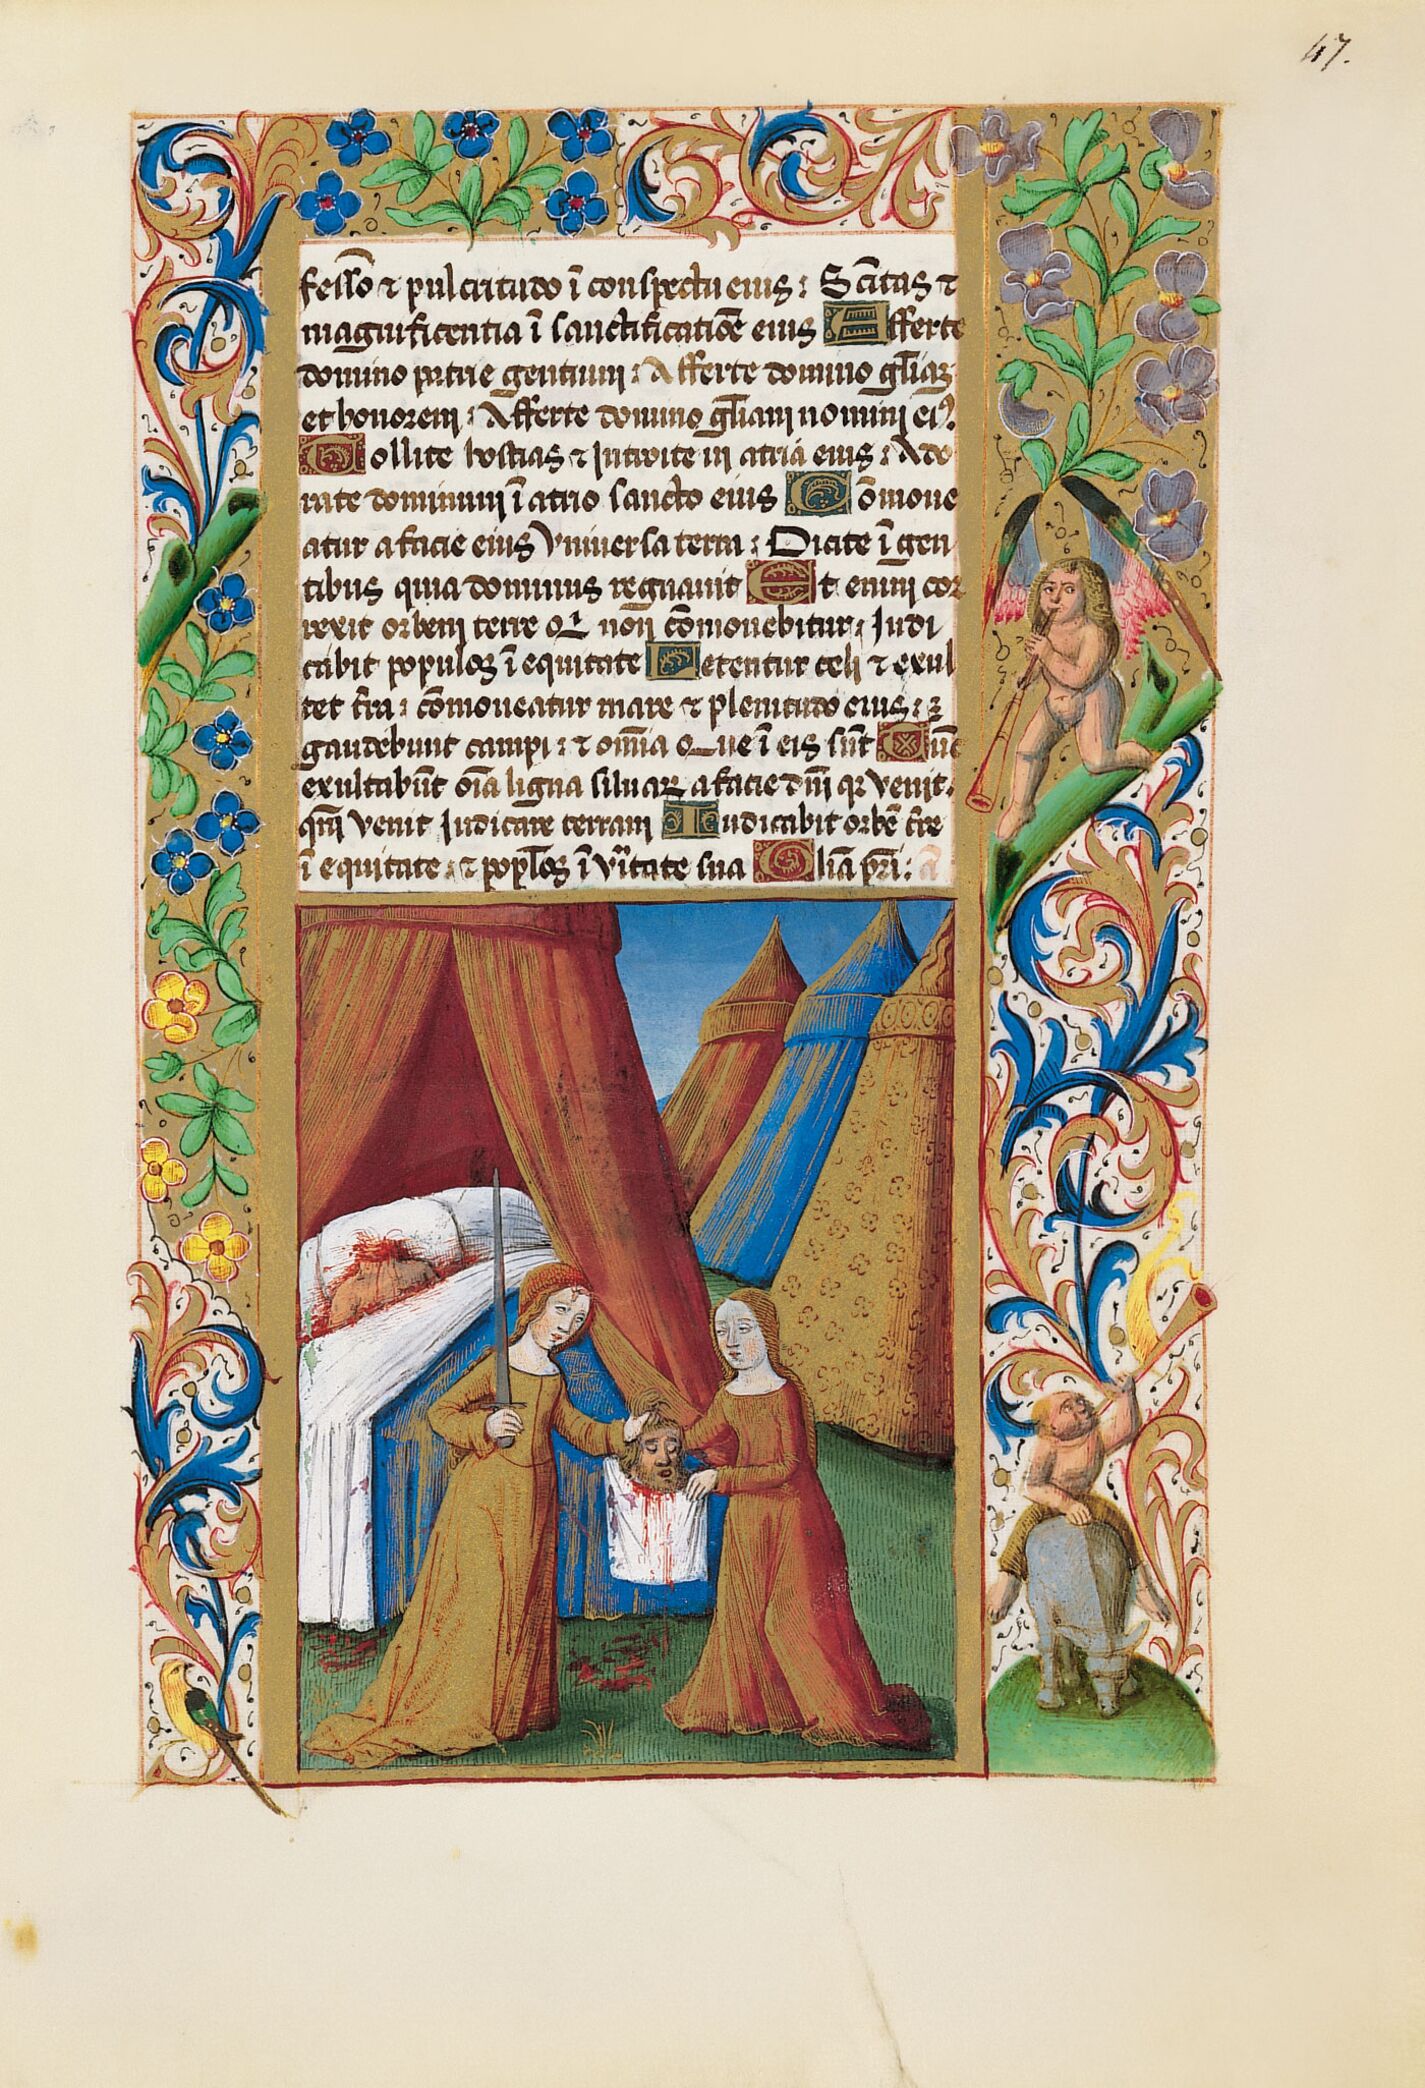 47.
fesso τ pulcritudo ī conspectu eius : Scītas τ
magnificentia ī sanctificatiōe eius Afferte
domino patrie gentium : Afferte domino gl̄iaꝫ
et honorem : Afferte domino gl̄iam nomini eiꝰ
Tollite hostias τ Introite in atria eius : Ado
rate dominum ī atrio sancto eius Cōmoue
atur a facie eius Vniuersa terra : Dicite ī gen
tibus quia dominus regnauit Et enim cor
rexit orbem terre qͥ non cōmouebitur : Judi
cabit populos ī equitate Letentur celi τ exul
tet tr̄a : cōmoueatur mare τ plenitudo eius :
gaudebunt campi : τ omīa que ī eis sūt Tūc
exultabūt oīa ligna siluaꝝ a facie dn̄i qꝛ venit :
qm̄ venit Judicare terram Iudicabit orbē tr̄e
ī equitate : τ popl̄os ī vr̄itate sua Gl̄ia pr̄i :